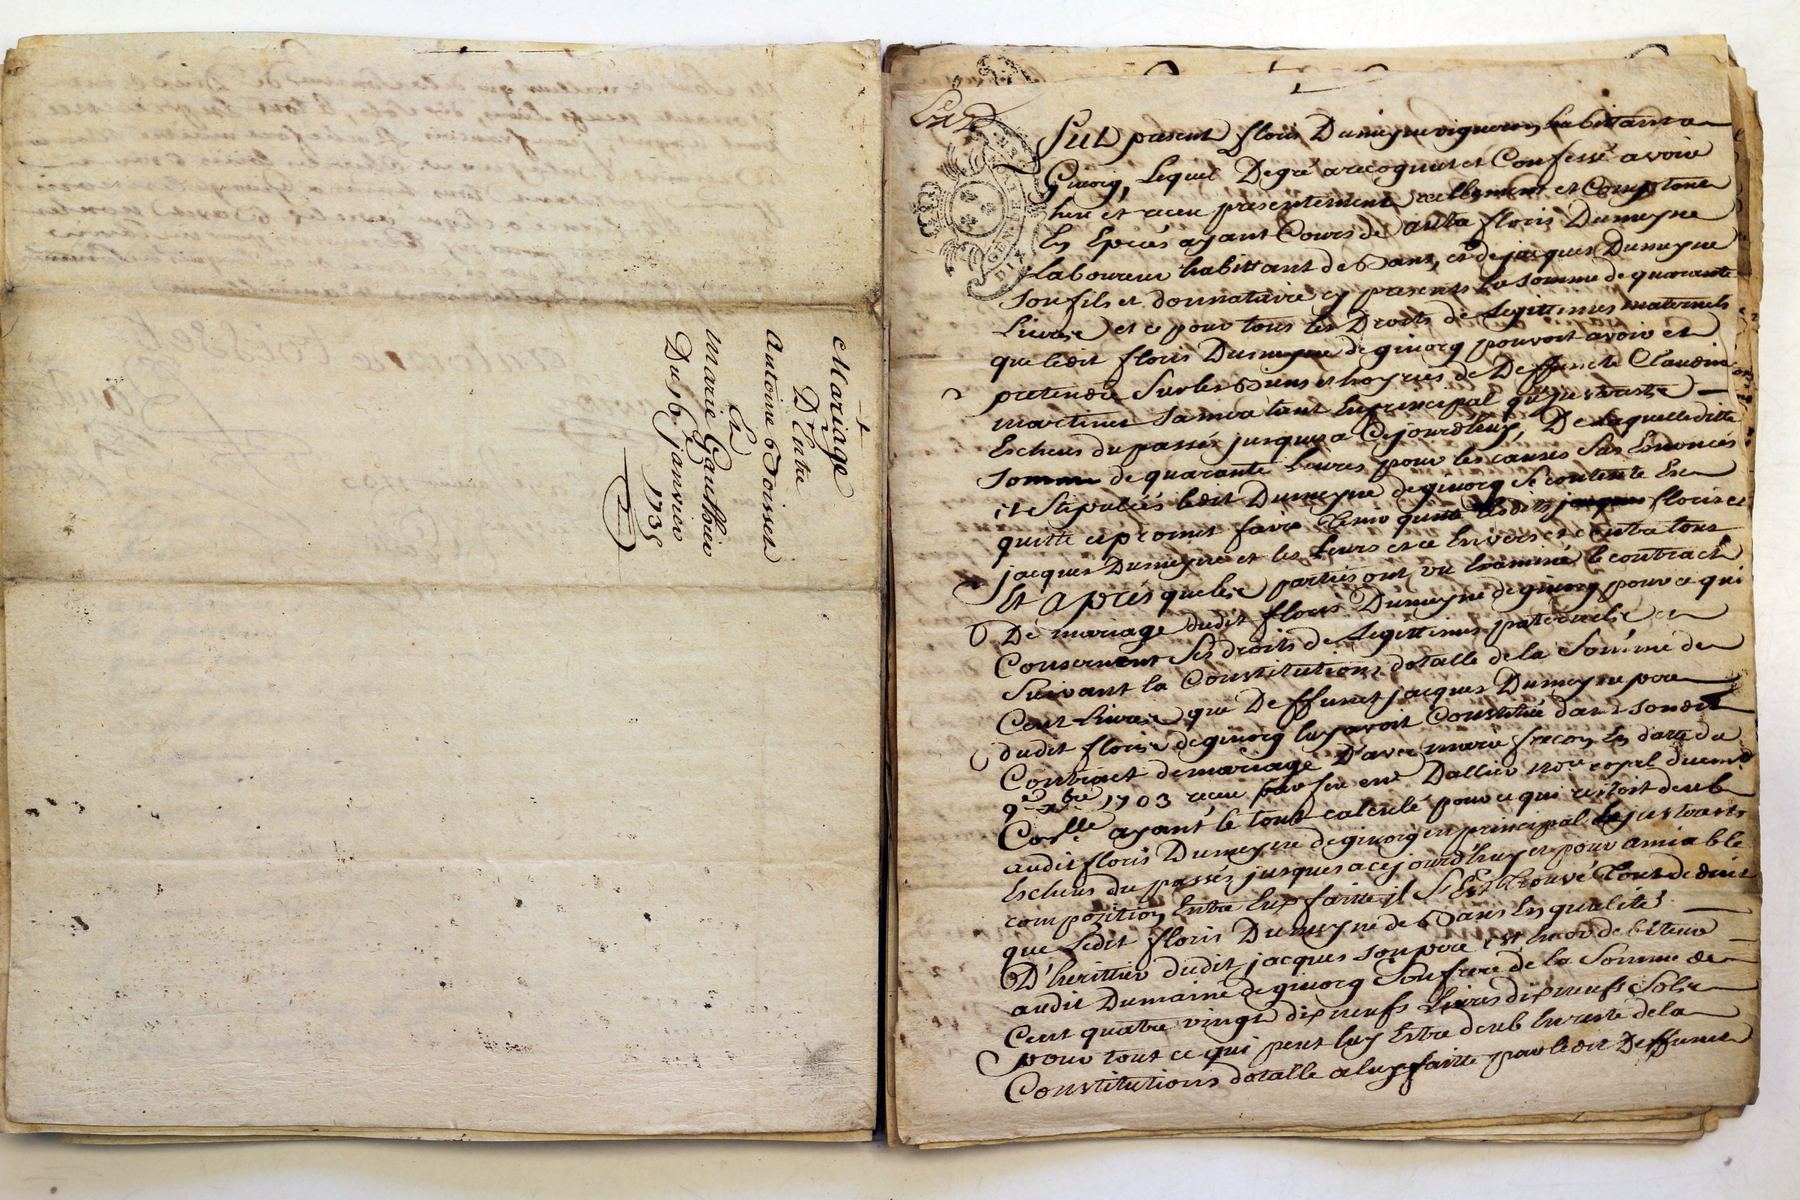 Mariage
D'Entre
Antoine Boisset
Et
Marie Gauthier
Du 16 janvier
1735
Fut present floris Dumeyne vigneron habittant a
Givorg, Lequel De gré a recognut et Confessé avoir
heu et receu presentement reellement et Comptant
En Espéces ayant Cours de floris Dumeyne
laboureur habittant de Bans, et de jacques Dumeyne
son fils et donnataire cy presents la somme de quarante
Livres et ce pour tous les Droits de Legittimes maternels
que ledit floris Dumeyne de givorg pouvoit avoir et
pretendre Sur les Biens et hoyries de Deffuncte Claudine
martinet sa mere tant En principal qu'jnterests
Escheus du passés jusques a Cejourdhuy, De Laquelle ditte
somme de quarante Livres pour les causes Sus Enoncés
et Stipulées ledit Dumeyne de givorg Se contente En
quitte et promet faire tenir quitte lesdits floris et
jacques Dumeyne et les Leurs et ce Envers et Contre tous
Et aprés que les parties ont vu Examiné le contract
De mariage dudit floris Dumeyne de givorg pour ce qui
Concernent Ses droits de Legittimes paternels et
Suivant la Constitution dotalle de la Somme de
Cent Livres que Deffunct jacques Dumeyne pere
dudit floris de givorg luy avoit Constitué dans sondit
Contract de mariage D'avec marie En datte du
1703 receu par feu me Dallier nore royal
ayant le tout calculé pour ce qui restoit deub
audit floris Dumeyne de givorg en principal jnterests
Escheus du passés jusques a cejourdhuy et pour amiable
composition Entre Eux faitte il S'Est trouvé
que Ledit floris Dumeyne de Bans En qualité
D'herittier dudit jacques son pere est Encor debiteur
audit Dumaine de givorg Son frere de la Somme de
Cent quatre vingt dix neufs Livres dix neufs Sols
pour tout ce qui peut luy Estre deub En reste de la
Constitutions dotalle a luy faitte par ledit Deffunct